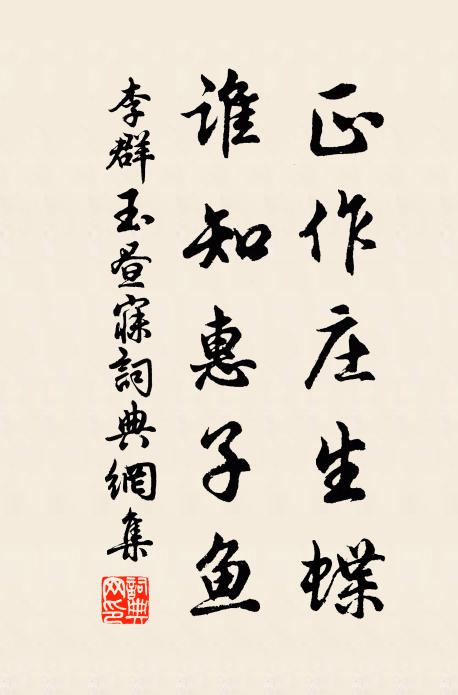 正作庄生蝶
谁知惠子鱼
李群玉昼寐詞典網集
詞典网印